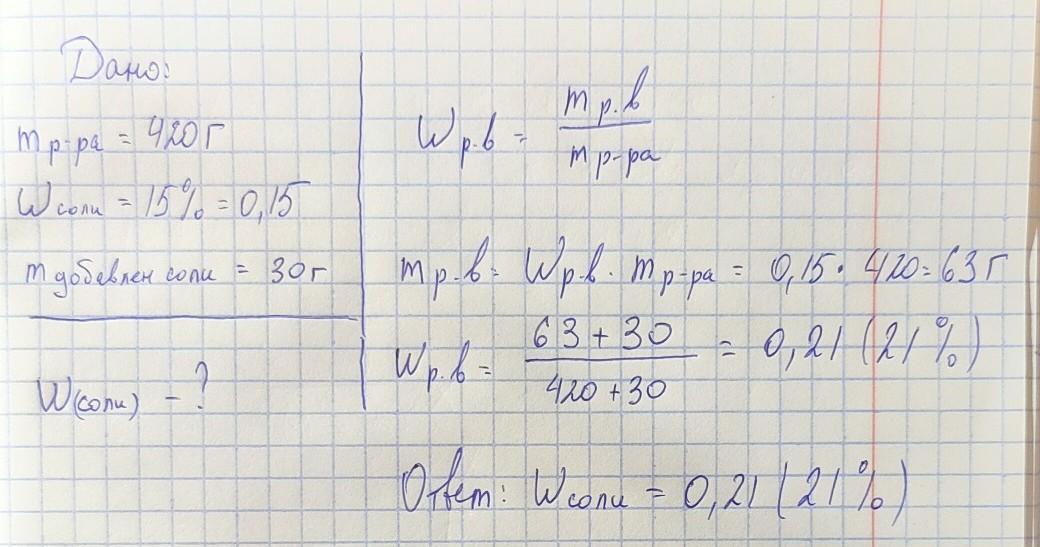 Дано:
m р-ра = 420 г
W соли = 15% = 0,15
m добавлен соли = 30 г
W(соли) - ?
W р.в = m р.в / m р-ра
m р.в = W р.в · m р-ра = 0,15 · 420 = 63 г
W р.в = 63 + 30 / 420 + 30 = 0,21 (21%)
Ответ: W соли = 0,21 (21%)